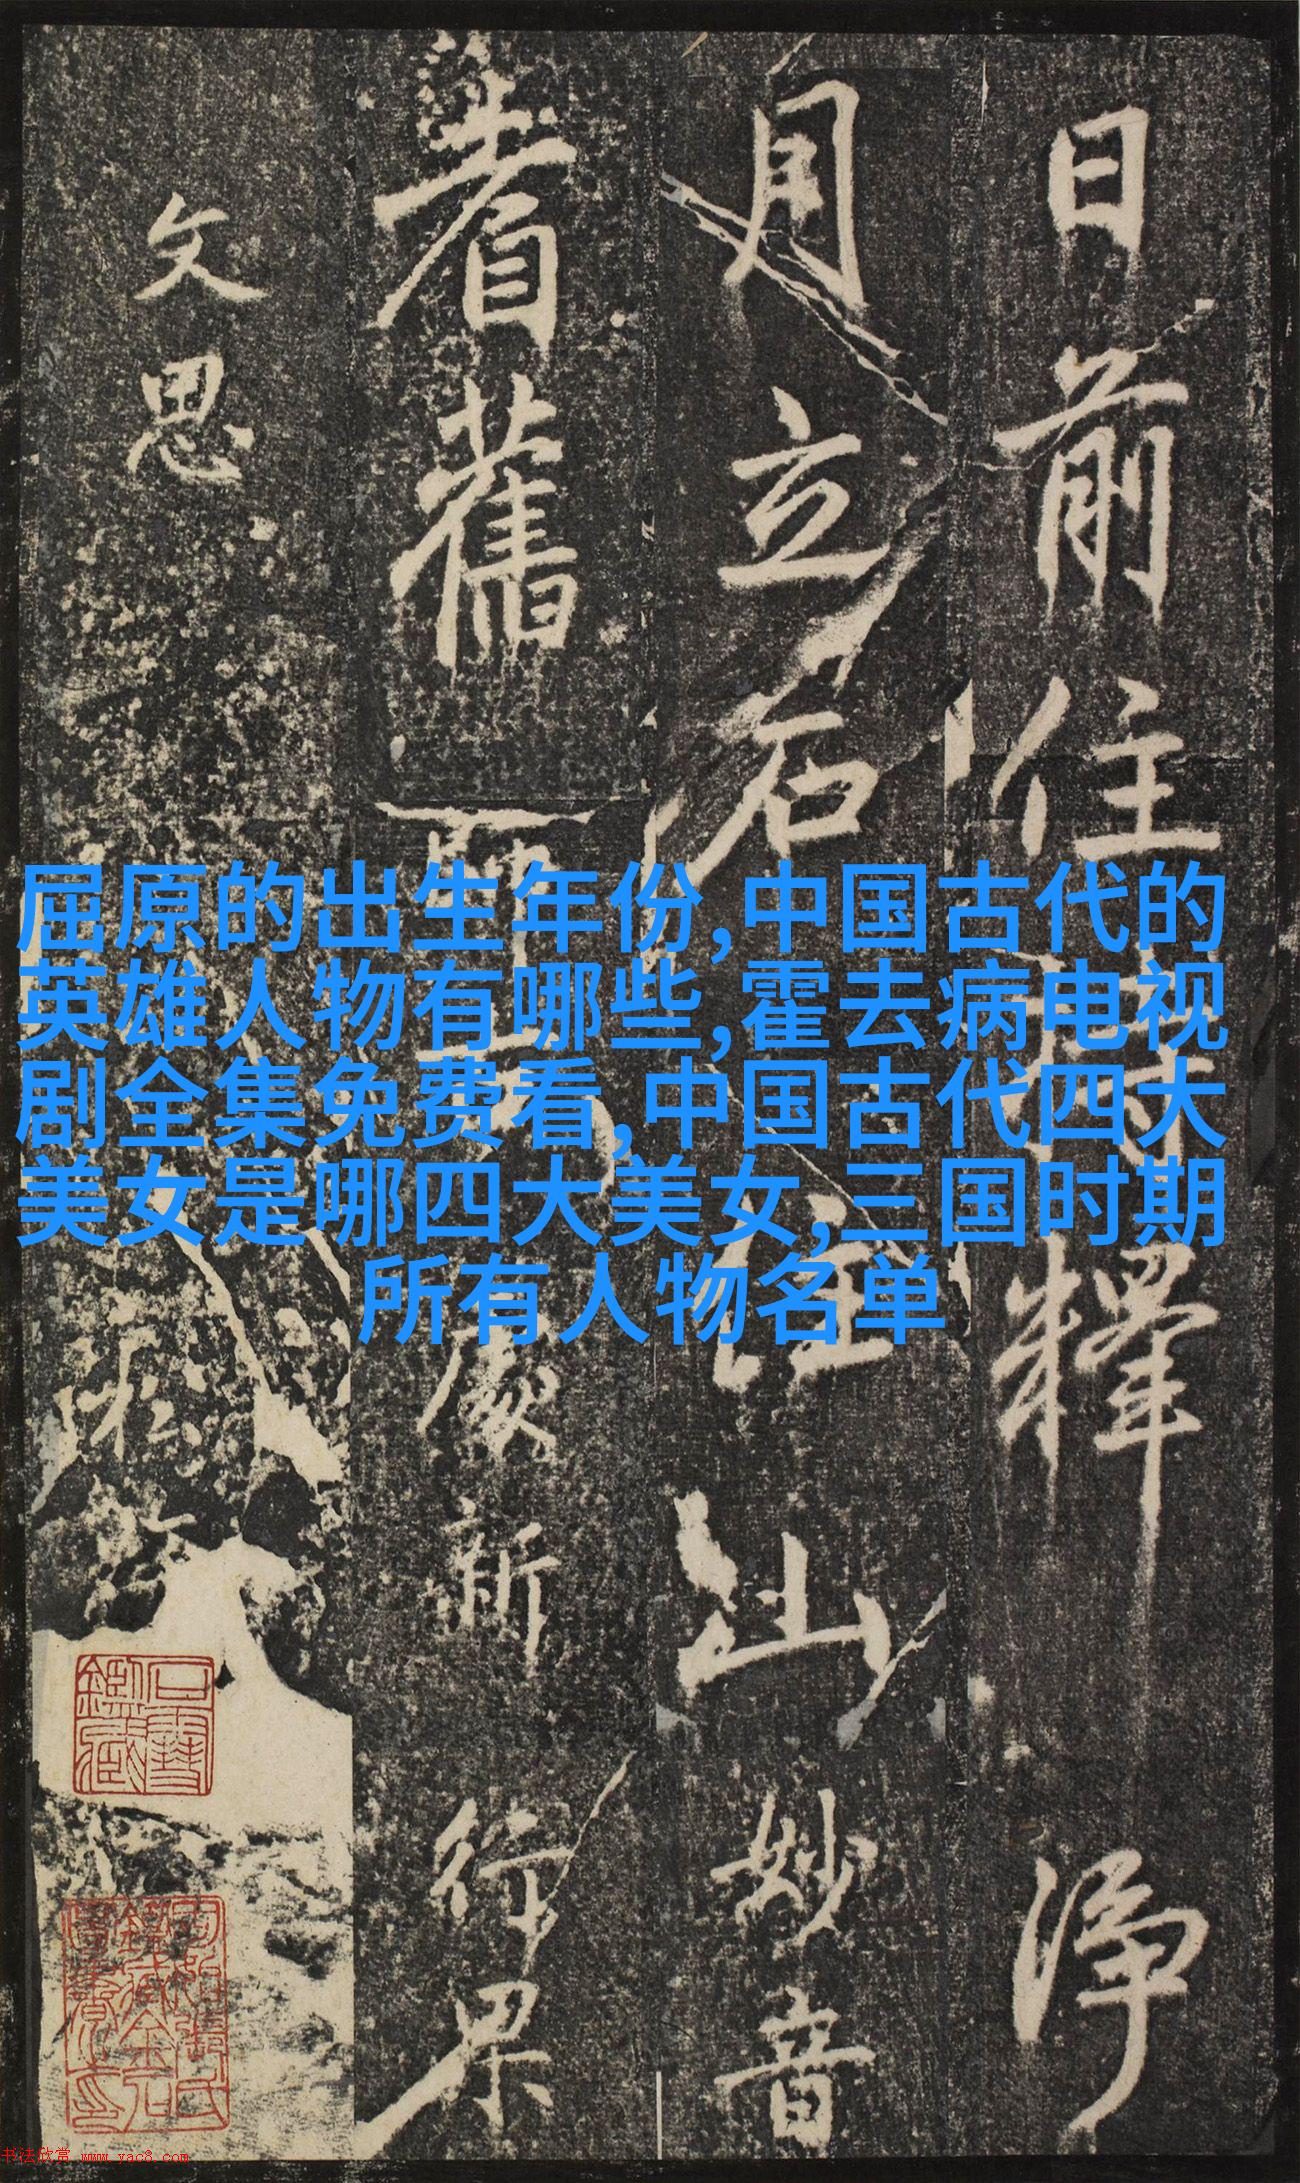 日前住持釋淨
月立石住山妙音
耆舊
新行果
文思
屈原的出生年份,中国古代的
英雄人物有哪些,霍去病电视
剧全集免费看,中国古代四大
美女是哪四大美女,三国时期
所有人物名单
书法欣赏 www.yac8.com